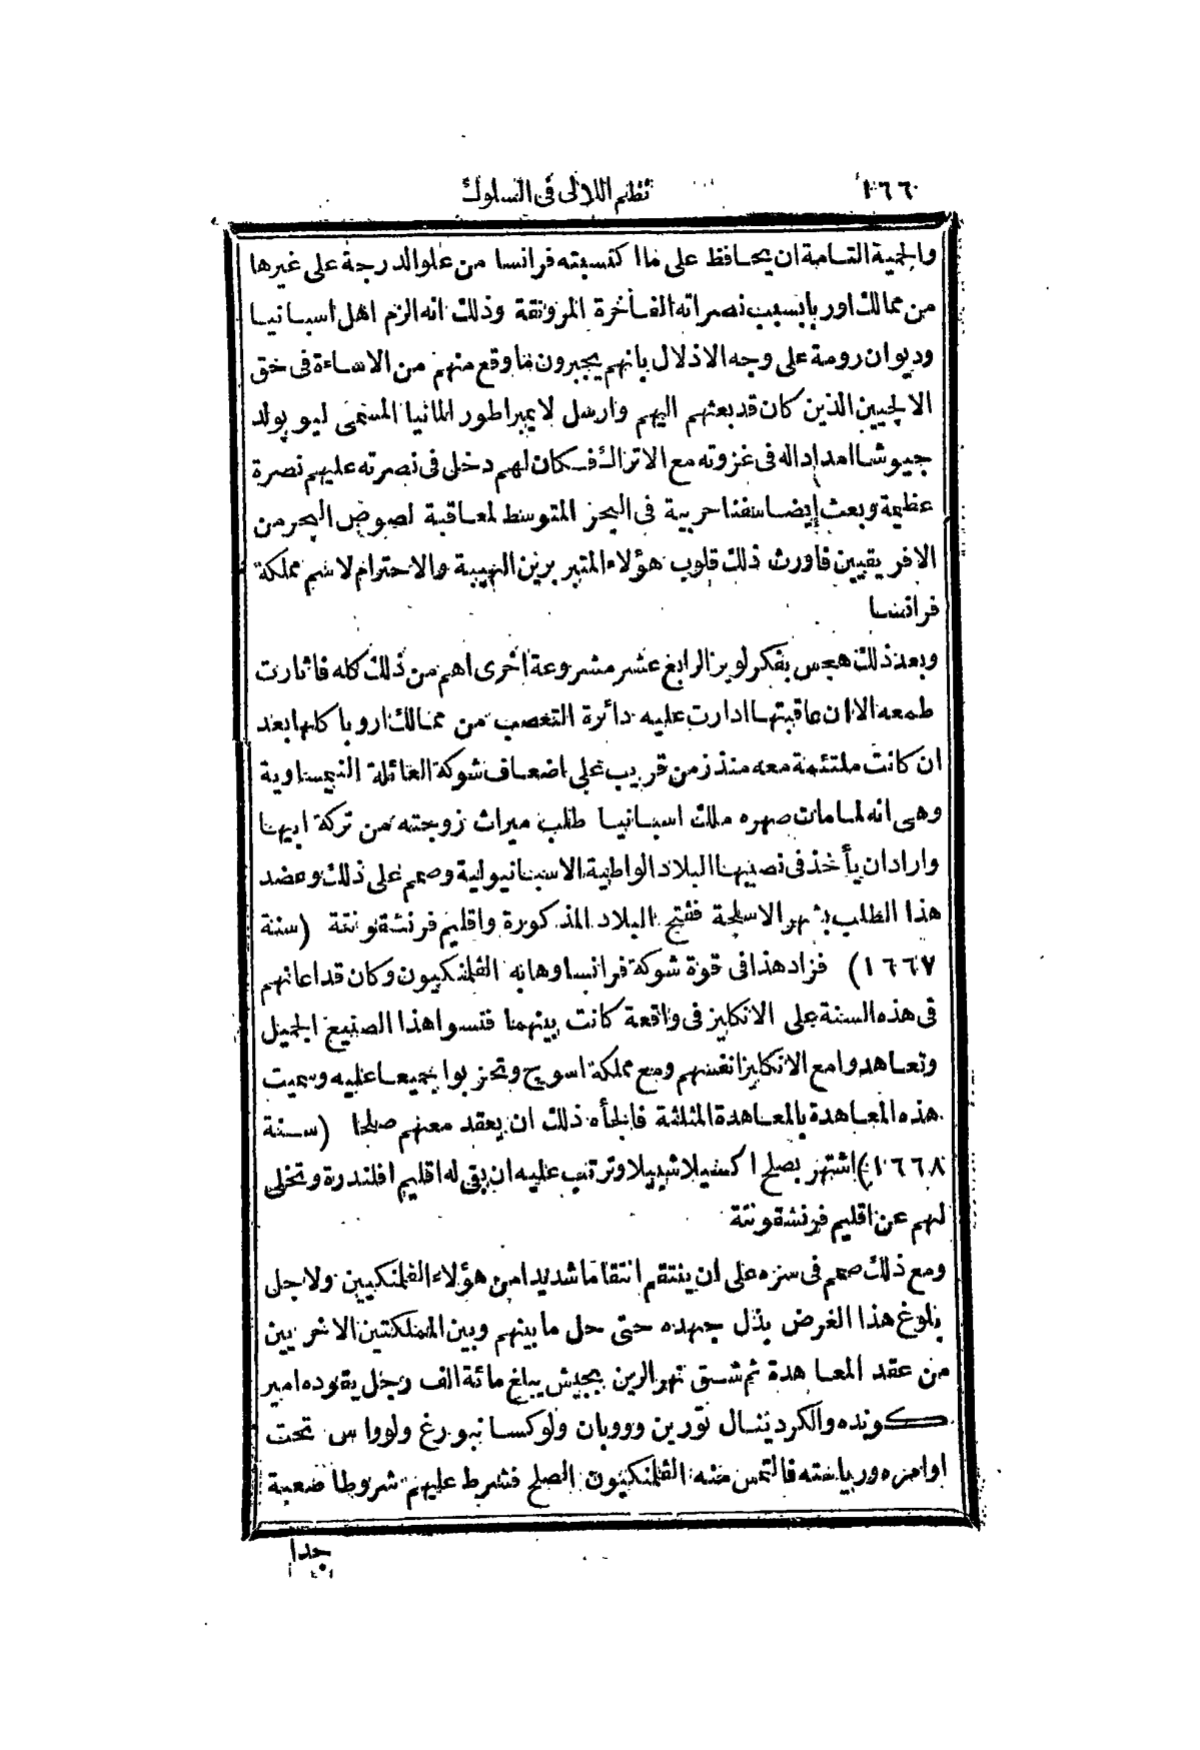 ١٦٦ نظم اللالى فى السلوك
والحمية التامة ان يحافظ على ما اكتسبته فرانسا من علو الدرجة على غيرها
من ممالك اوربا بسبب نصراته الفاخرة المرونقة وذلك انه الزم اهل اسبانيا
وديوان رومة على وجه الاذلال بانهم يجبرون ما وقع منهم من الاساءة فى حق
الالجيين الذين كان قد بعثهم اليهم وارسل لايمبراطور المانيا المسمى ليوپولد
جيوشا امدادا له فى غزوته مع الاتراك فكان لهم دخل فى نصرته عليهم نصرة
عظيمة وبعث ايضا سفنا حربية فى البحر المتوسط لمعاقبة لصوص البحر من
الافريقيين فاورث ذلك قلوب هؤلاء المتبربرين الهيبة والاحترام لاسم مملكة
فرانسا
وبعد ذلك هجس بفكر لويز الرابع عشر مشروعة اخرى اهم من ذلك كله فاثارت
طمعه الا ان عاقبتها ادارت عليه دائرة التعصب من ممالك اروبا كلها بعد
ان كانت ملتئمة معه منذ زمن قريب على اضعاف شوكة العائلة النيمساوية
وهى انه لما مات صهره ملك اسبانيا طلب ميراث زوجته من تركة ابيها
واراد ان يأخذ فى نصيبها البلاد الواطية الاسبانيولية وصمم على ذلك وعضد
هذا الطلب بشهر الاسلحة ففتح البلاد المذكورة واقليم فرنشقونتة (سنة
١٦٦٧) فزاد هذا فى قوة شوكة فرانسا وهابه الفلمنكيون وكان قد اعانهم
فى هذه السنة على الانكليز فى واقعة كانت بينهما فنسوا هذا الصنيع الجميل
وتعاهدوا مع الانكليز انفسهم ومع مملكة اسويج وتحزبوا جميعا عليه وسميت
هذه المعاهدة بالمعاهدة المثلثة فالجأه ذلك ان يعقد معهم صلحا (سنة
١٦٦٨) اشتهر بصلح اكسيلاشپيلا وترتب عليه ان بقى له اقليم افلندرة وتخلى
لهم عن اقليم فرنشقونتة
ومع ذلك صمم فى سره على ان ينتقم انتقاما شديدا من هؤلاء الفلمنكيين ولاجل
بلوغ هذا الغرض بذل جهده حتى حل ما بينهم وبين المملكتين الاخريين
من عقد المعاهدة ثم شق نهر الرين بجيش يبلغ مائة الف رجل يقوده امير
كونده والكردينال تورين وووبان ولوكسانبورغ ولوواس تحت
اوامره ورياسته فالتمس منه الفلمنكيون الصلح فشرط عليهم شروطا صعبة
جدا